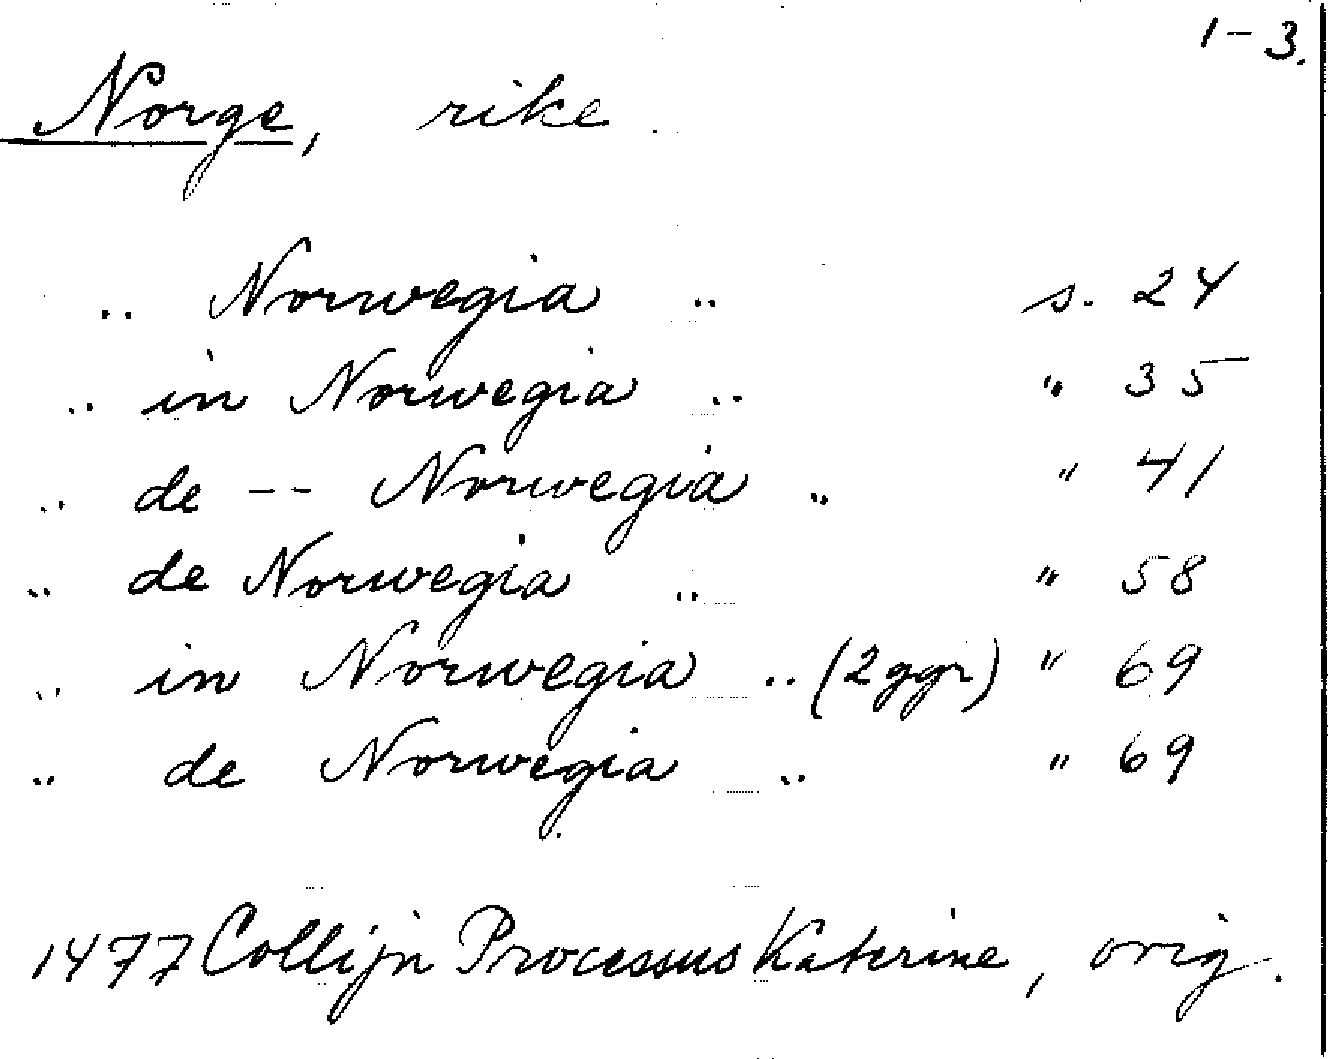 1-3.
Norge, rike
.. Norwegia .. s. 24
.. in Norwegia .. " 35
.. de -- Norwegia .. " 41
.. de Norwegia .. " 58
.. in Norwegia .. (2ggr) " 69
.. de Norwegia .. " 69
1477 Collijn Processus Katerine, orig.